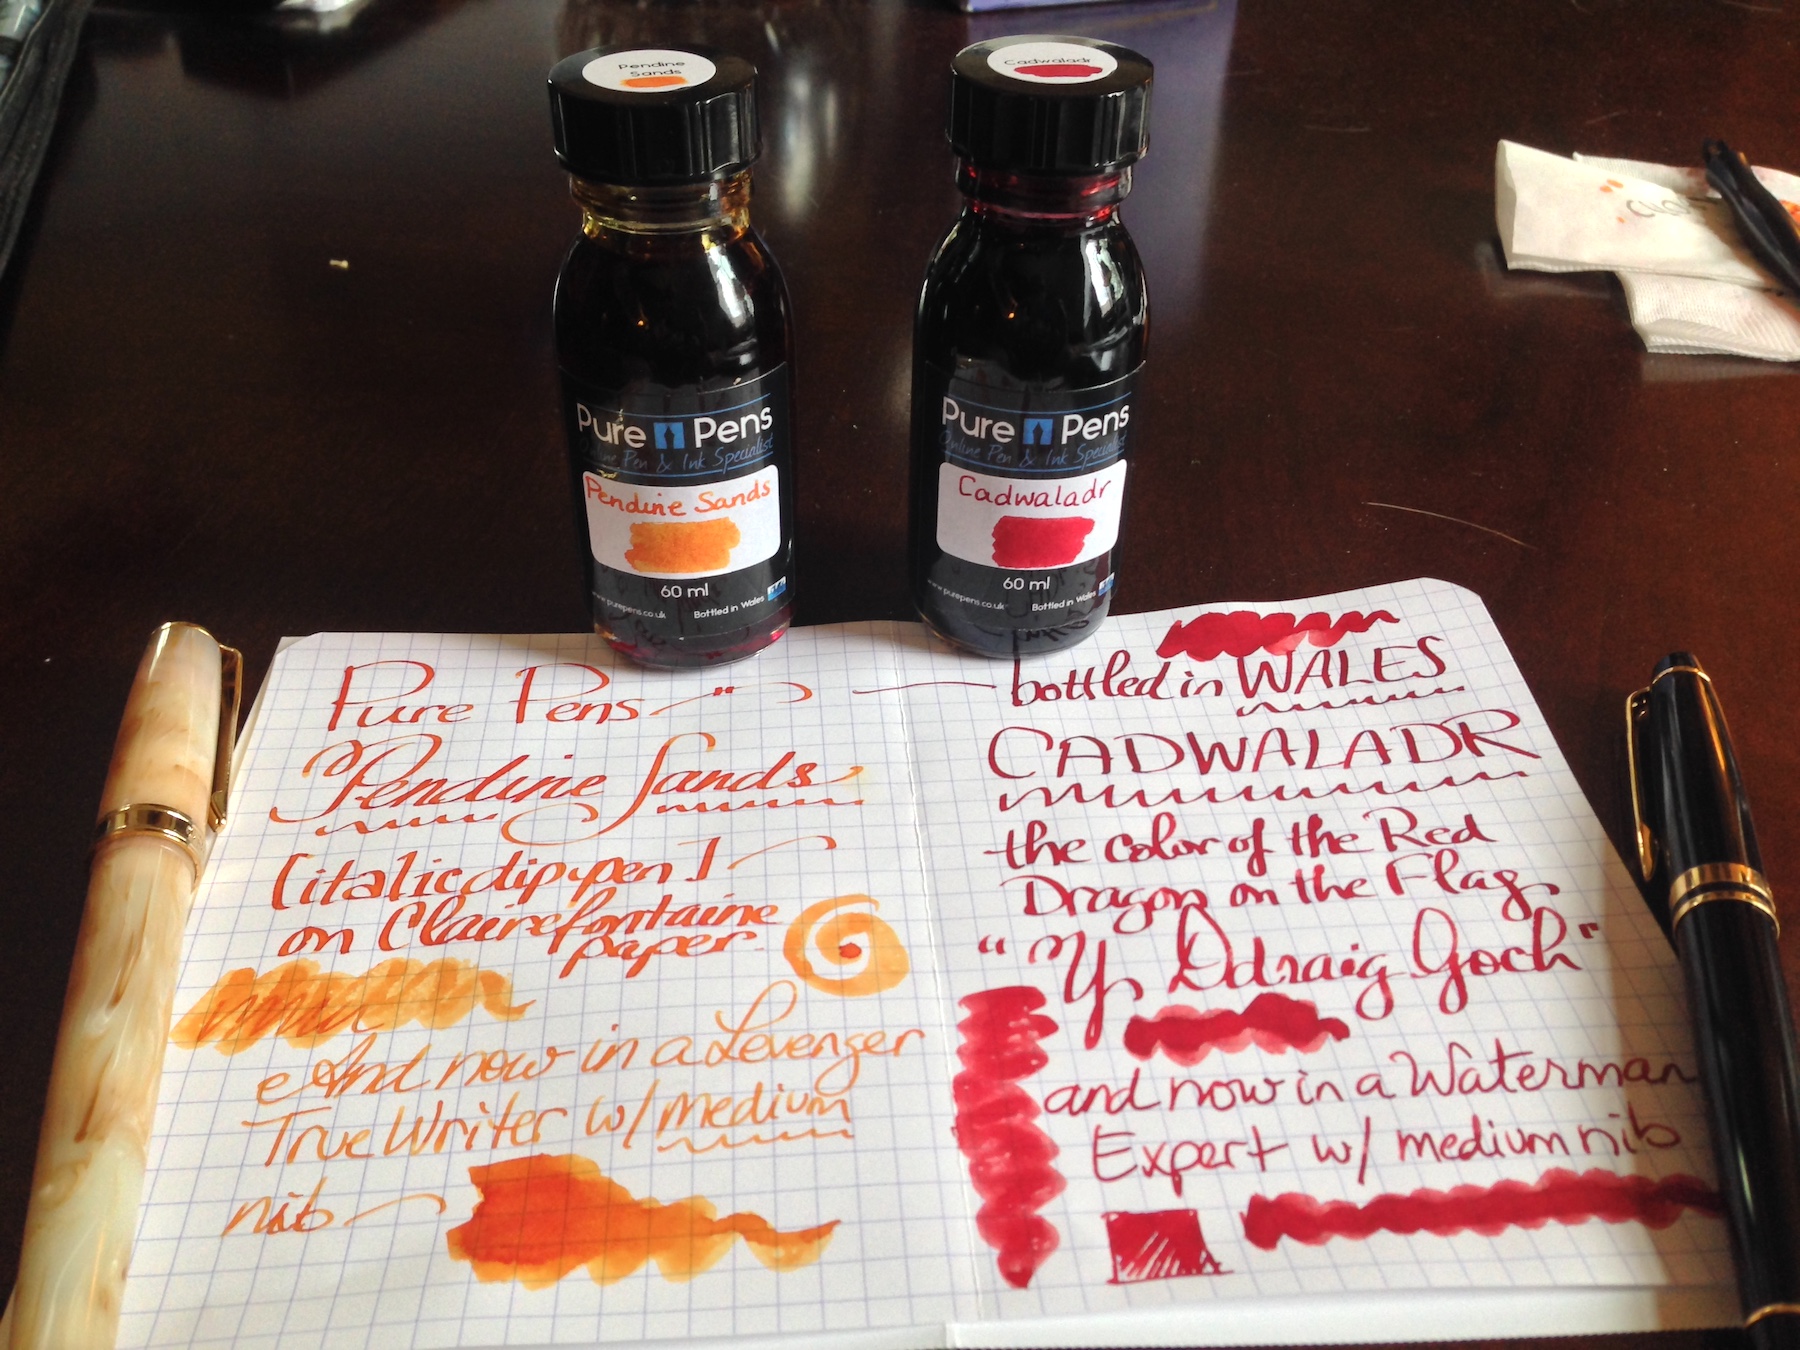 Pendine
Sands
Cadwaladr
Pure Pens
Online Pen & Ink Specialist
Pendine Sands
60 ml
www.purepens.co.uk
Bottled in Wales
Pure Pens
Online Pen & Ink Specialist
Cadwaladr
60 ml
www.purepens.co.uk
Bottled in Wales
Pure Pens
Pendine Sands
[italic dip pen]
on Clairefontaine
paper.
And now in a Levenger
True Writer w/ medium
nib
bottled in WALES
CADWALADR
the color of the Red
Dragon on the Flag
"Y Ddraig Goch"
and now in a Waterman
Expert w/ medium nib